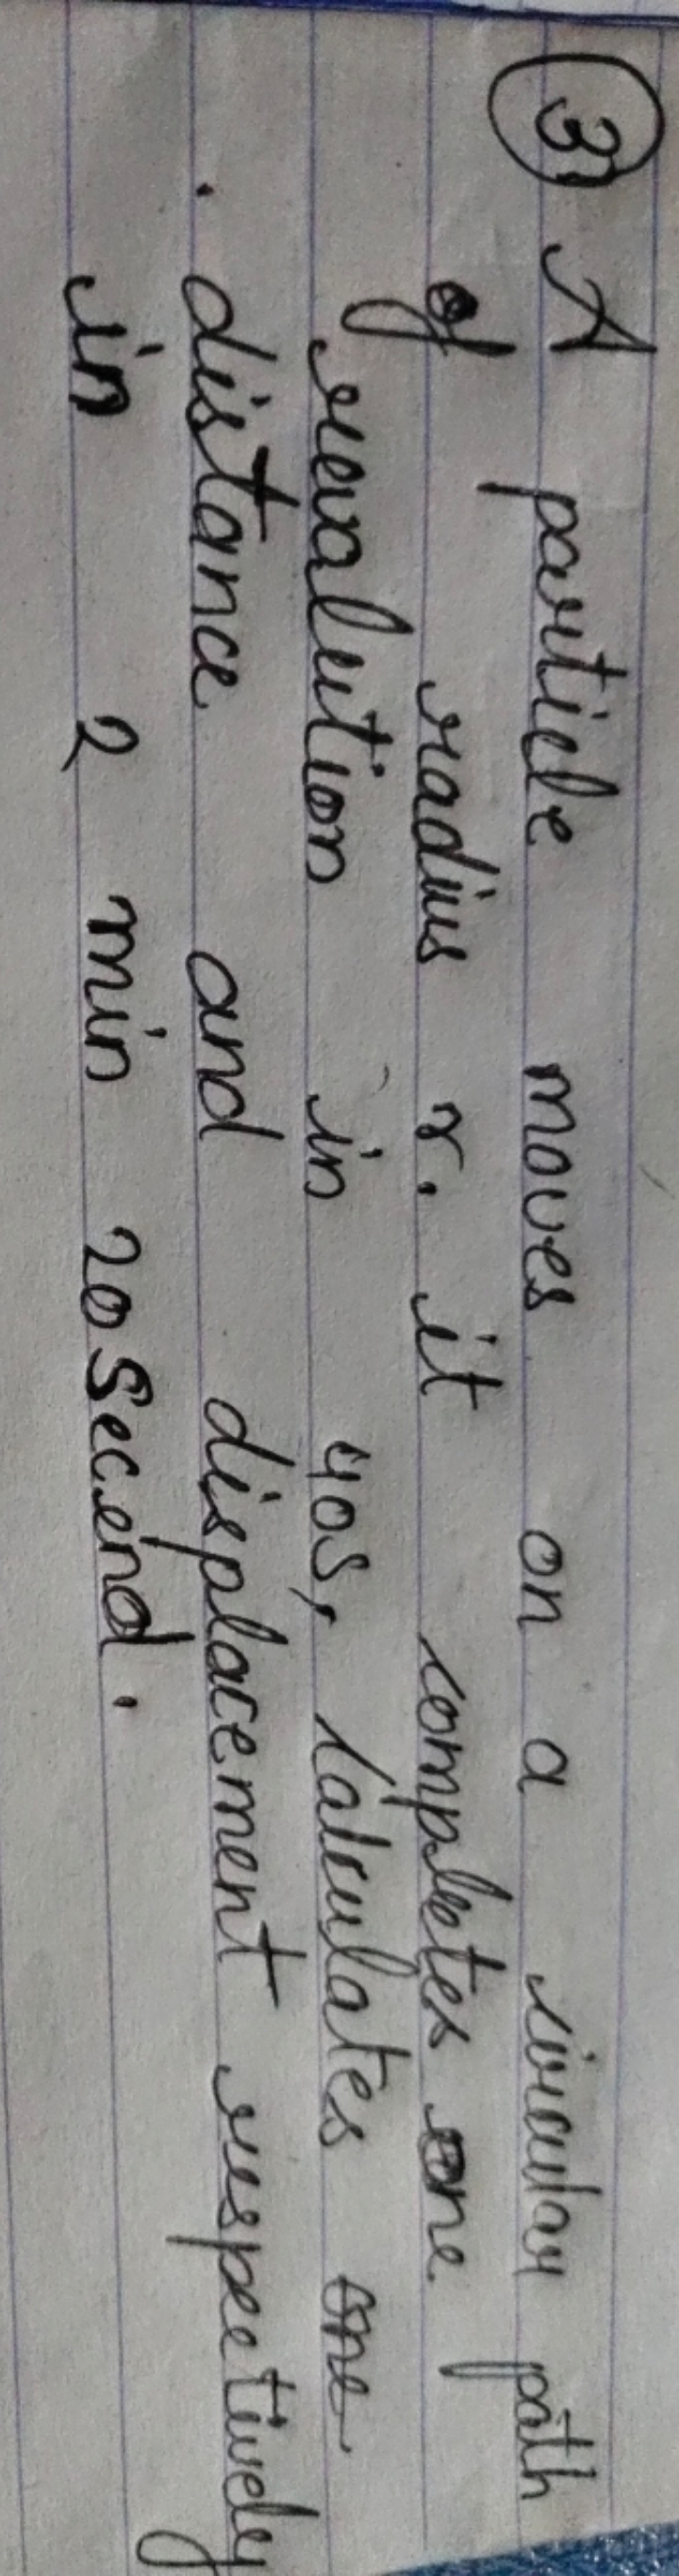 ③ A particle moves on a circular path
of radius r. it completes one
revolution in 40s, calculates one
. distance and displacement respectively
in 2 min 20 Second.